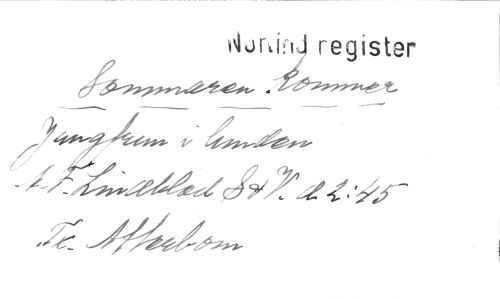 Nordind register
Sommaren kommer
Jungfrun i lunden
A. F. Lindblad S & V. d. 2:45
Tx. Atterbom